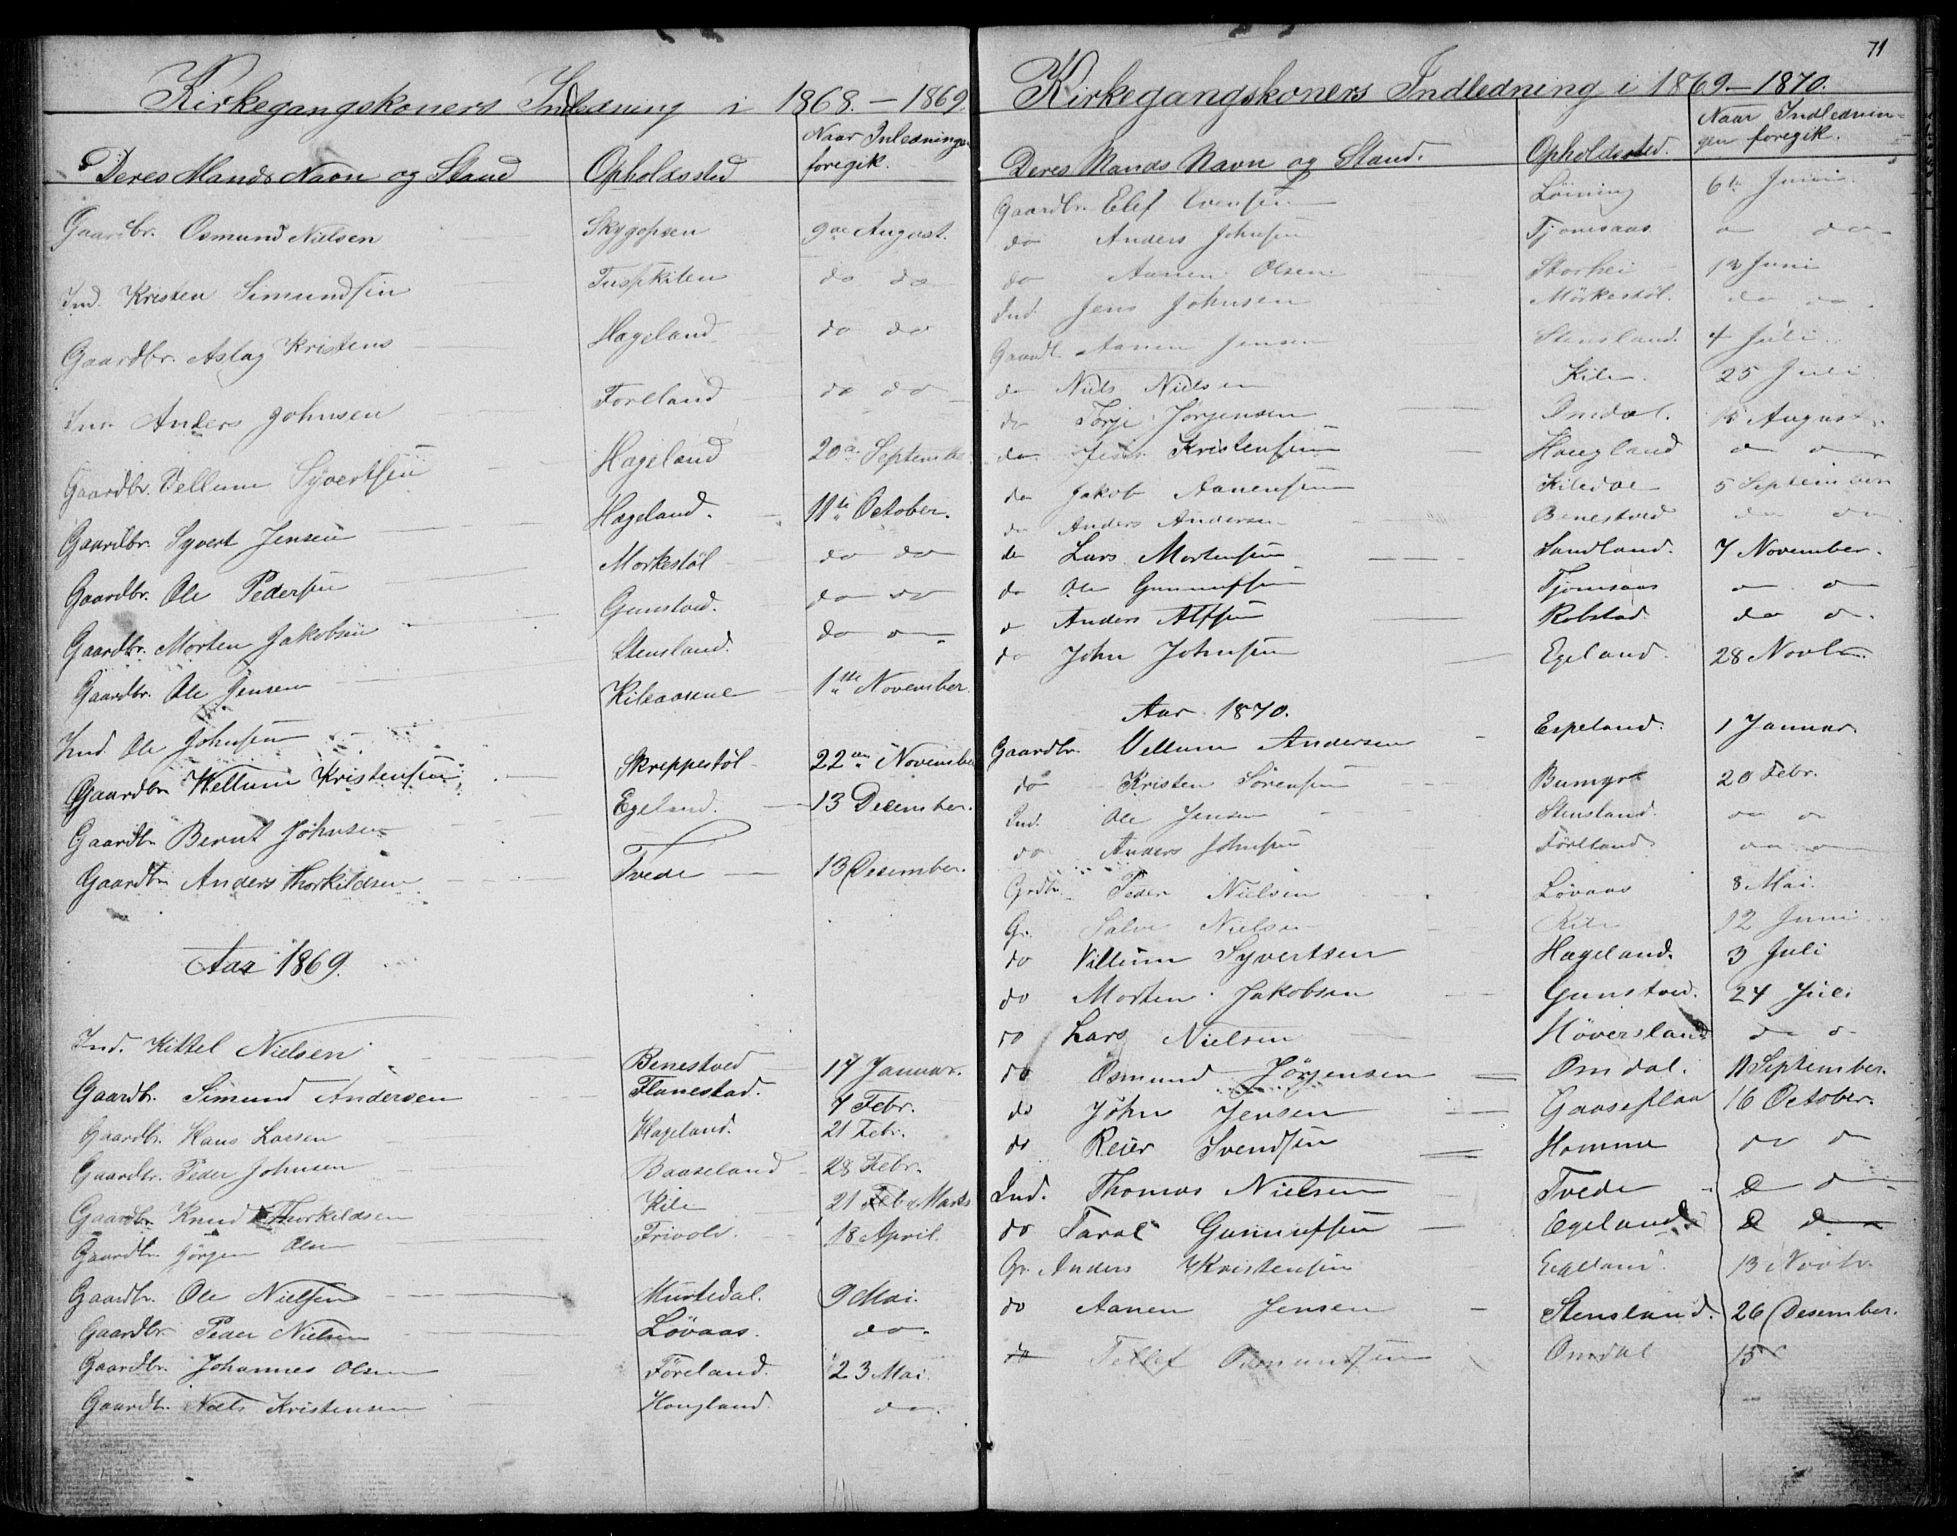 Kirkegangskoners Indledning i 1868.-1869
Deres Mands Navn og Stand Opholdssted Naar Inledningen foregik.
Gaardbr. Osmund Nielsen 9de August.
Ind. Kristen Simundsen do do
Gaardbr. Aslag Kristens Hageland do do
Ind. Anders Johnsen Foreland do do
Gaardbr. Vellum Syvertsen Hageland 20de September
Gaardbr. Syvert Jensen Hageland. 11te October.
Gaardbr. Ole Pedersen Morkestøl do do
Gaardbr. Morten Jakobsen Gunstved. do do
Gaardbr. Ole Jensen Stensland. do do
Ind. Ole Johnsen Kileaasene 1ste November.
Gaardbr Wellum Kristensen Skreppestøl 22de November
Gaardbr Bernt Johnsen Egeland. 13 December.
Gaardbr Anders Thorkildsen Tvede 13 Desember.
Aar 1869.
Ind. Kittel Nielsen Benestved 17 Januar.
Gaardbr. Simund Andersen Flanestad. 7 Febr.
Gaardbr. Hans Larsen Hageland. 21 Febr.
Gaardbr. Peder Johnsen Baaseland 28 Febr.
Gaardbr. Knud Thorkildsen Kile 21 Marts
Gaardbr. Jørgen Olsen Frivold. 18 April.
Gaardbr. Ole Nielsen Murtedal. 9 Mai.
Gaardbr. Peder Nielsen Løvaas. do.
Gaardbr. Johannes Olsen Føreland. 23 Mai.
Gaardbr. Niels Kristensen Hougland do.
71
Kirkegangskoners Indledning i 1869-1870.
Deres Mands Navn og Stand. Opholdssted. Naar Indledningen foregik.
Gaardbr. Elef Evensen Løining 6te Juni.
do Anders Johnsen Tjomsaas do do
do Aanen Olsen Storhei 13 Juni
Ind. Jens Johnsen Mørkestøl. do do.
Gaardb. Aanen Jensen Stensland. 4 Juli.
do Niels Nielsen Kile. 25 Juli
do Torje Jørgensen Omdal. 15 August.
do Jens Kristensen Hougland do do
do Jakob Aanensen Kiledal 5 September
do Anders Andersen Benestved do do
do Lars Mortensen Sandland. 7 November.
do Ole Gunnufsen Tjomsaas do do
do Anders Alfsen Robstad do do.
do John Johnsen Egeland. 28 Novbr.
Aar 1870.
Gaardbr. Vellum Andersen Espeland. 1 Januar
do Kristen Sørensen 20 Febr.
Ind. Ole Jensen Stensland. do do
do Anders Johnsen Føreland do do
Grdbr. Peder Nielsen Løvaas 8 Mai.
Gr. Salve Nielsen Kile 12 Juni
do Villum Syvertsen Hageland. 3 Juli
do Morten Jakobsen Gunstved. 24 Juli
do Lars Nielsen Høversland do do
do Osmund Jørgensen Omdal. 11 September.
do John Jensen Gaaseflaa 16 October.
do Reier Svendsen Homme do do
Ind. Thomas Nielsen Tvede D do
do Taral Gunnufsen Egeland D do
Gr. Anders Kristensen Egeland. 13 Novbr.
do Aanen Jensen Stensland. 26 Desember.
do Tellef Osmundsen Omdal 15